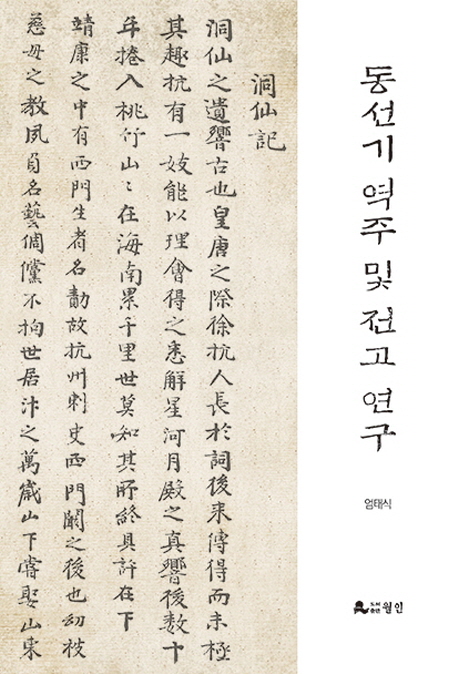 동선기 역주 및 전고 연구
엄태식
도서출판 월인
洞仙記
洞仙之遺響古也皇唐之際徐杭人長於詞後來傳得而未極
其趣杭有一妓能以理會得之悉解星河月殿之真響後數十
年捲入桃竹山〻在海南累千里世莫知其所終具許在下
靖康之中有西門生者名勣故杭州刺史西門闞之後也幼被
慈母之教夙負名藝倜儻不拘世居汴之萬歲山下嘗娶山東